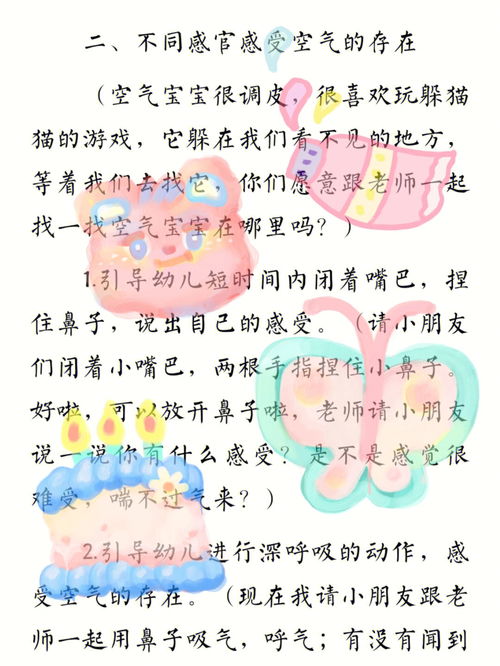 二、不同感官感受空气的存在
（空气宝宝很调皮，很喜欢玩躲猫
猫的游戏，它躲在我们看不见的地方，
等着我们去找它，你们愿意跟老师一起
找一找空气宝宝在哪里吗？）
1.引导幼儿短时间内闭着嘴巴，捏
住鼻子，说出自己的感受。（请小朋友
们闭着小嘴巴，两根手指捏住小鼻子。
好啦，可以放开鼻子啦，老师请小朋友
说一说你有什么感受？是不是感觉很
难受，喘不过气来？）
2.引导幼儿进行深呼吸的动作，感
受空气的存在。（现在我请小朋友跟老
师一起用鼻子吸气，呼气；有没有闻到